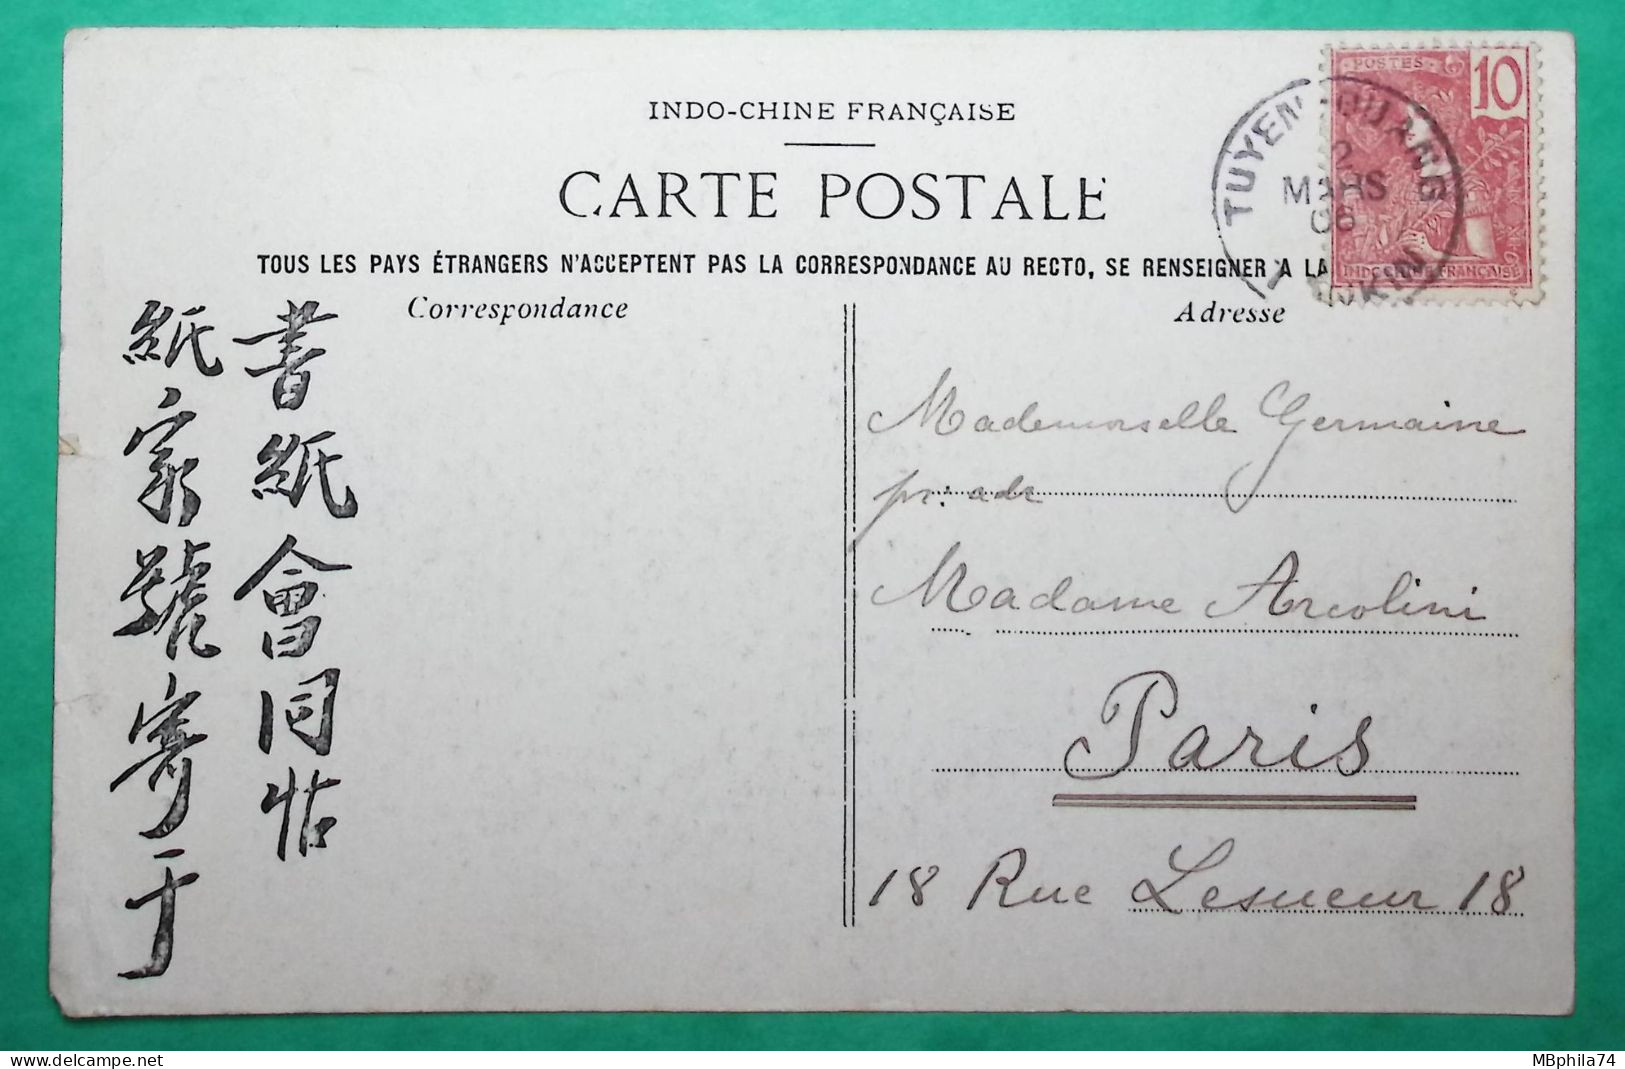 INDO-CHINE FRANÇAISE
CARTE POSTALE
TOUS LES PAYS ÉTRANGERS N'ACCEPTENT PAS LA CORRESPONDANCE AU RECTO, SE RENSEIGNER A LA
Correspondance
Adresse
POSTES
10
INDO-CHINE FRANÇAISE
TUYEN-QUANG
2
MARS
06
TONKIN
書紙會同帖
紙家號寄于
Mademoiselle Germaine
pr: adr
Madame Arcolini
Paris
18 Rue Lesueur 18
MBphila74